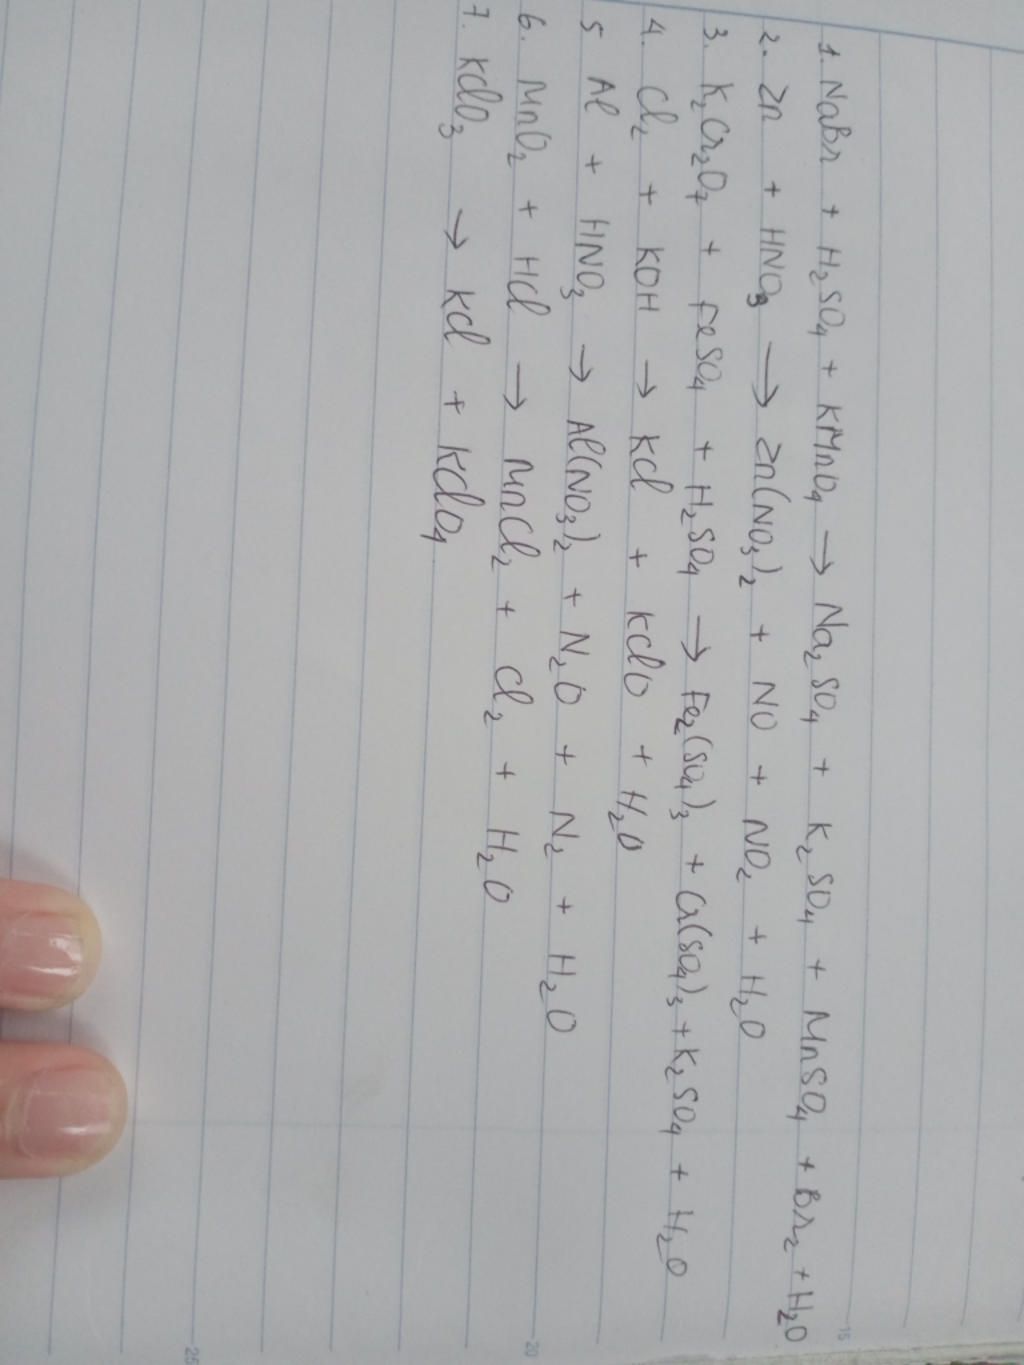 1. NaBr + H₂SO₄ + KMnO₄ → Na₂SO₄ + K₂SO₄ + MnSO₄ + Br₂ + H₂O
2. Zn + HNO₃ → Zn(NO₃)₂ + NO + NO₂ + H₂O
3. K₂Cr₂O₇ + FeSO₄ + H₂SO₄ → Fe₂(SO₄)₃ + Cr(SO₄)₃ + K₂SO₄ + H₂O
4. Cl₂ + KOH → KCl + KClO + H₂O
5 Al + HNO₃ → Al(NO₃)₂ + N₂O + N₂ + H₂O
6. MnO₂ + HCl → MnCl₂ + Cl₂ + H₂O
7. KClO₃ → KCl + KClO₄
15
20
25